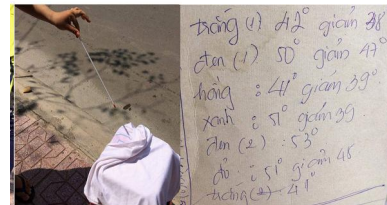 trắng (1) 42° giảm 38°
đen (1) 50° giảm 47°
hồng : 41° giảm 39°
xanh : 51° giảm 39
đen (2) : 53°
đỏ : 51° giảm 45
trắng (2) : 41°